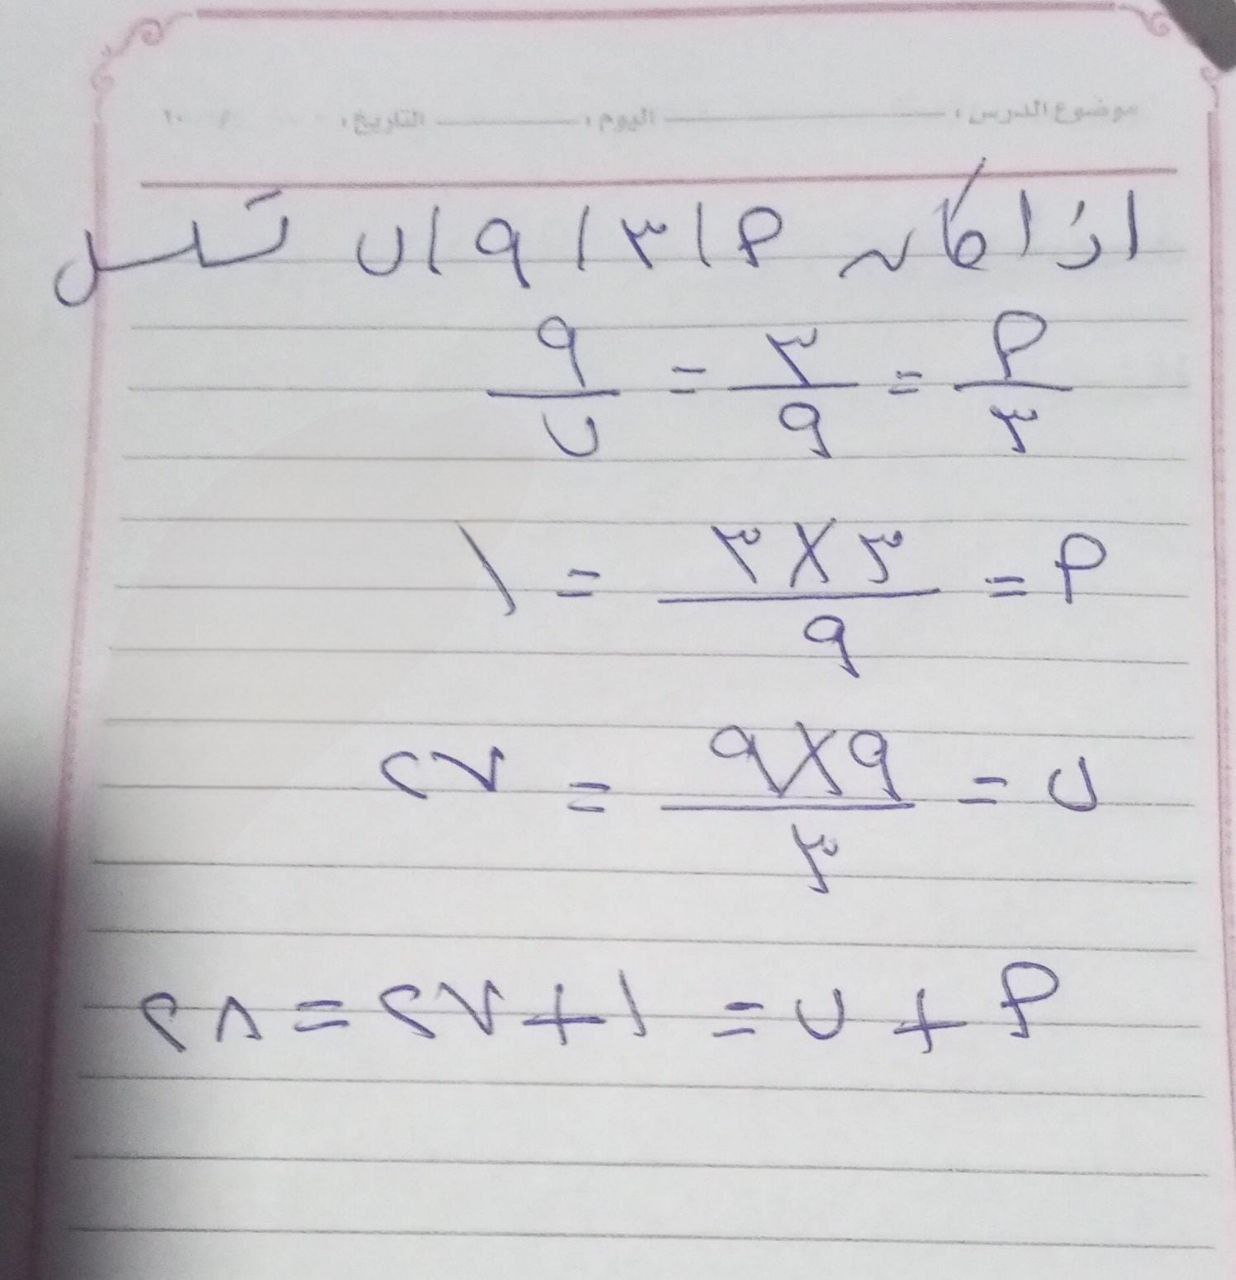 موضوع الدرس : اليوم : التاريخ : / ٢٠
اذا كان م ، ٣ ، ٩ ، ن تسلسل
م/٣ = ٣/٩ = ٩/ن
م = ٣×٣/٩ = ١
ن = ٩×٩/٣ = ٢٧
م + ن = ١+٢٧ = ٢٨